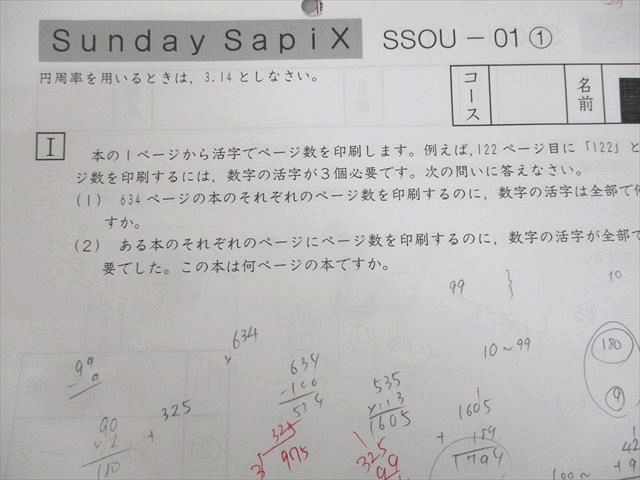 Sunday SapiX SSOU－01①
円周率を用いるときは，3.14としなさい。
コース
名前
Ⅰ
本の1ページから活字でページ数を印刷します。例えば，122ページ目に「122」と
ジ数を印刷するには，数字の活字が3個必要です。次の問いに答えなさい。
(1) 634ページの本のそれぞれのページ数を印刷するのに，数字の活字は全部で何
すか。
(2) ある本のそれぞれのページにページ数を印刷するのに，数字の活字が全部で
要でした。この本は何ページの本ですか。
99
10
634
10～99
180
9
99
634
-100
534
535
×3
1605
1605
+ 189
1794
90
×2
180
+ 325
325
3
975
325
99
100～